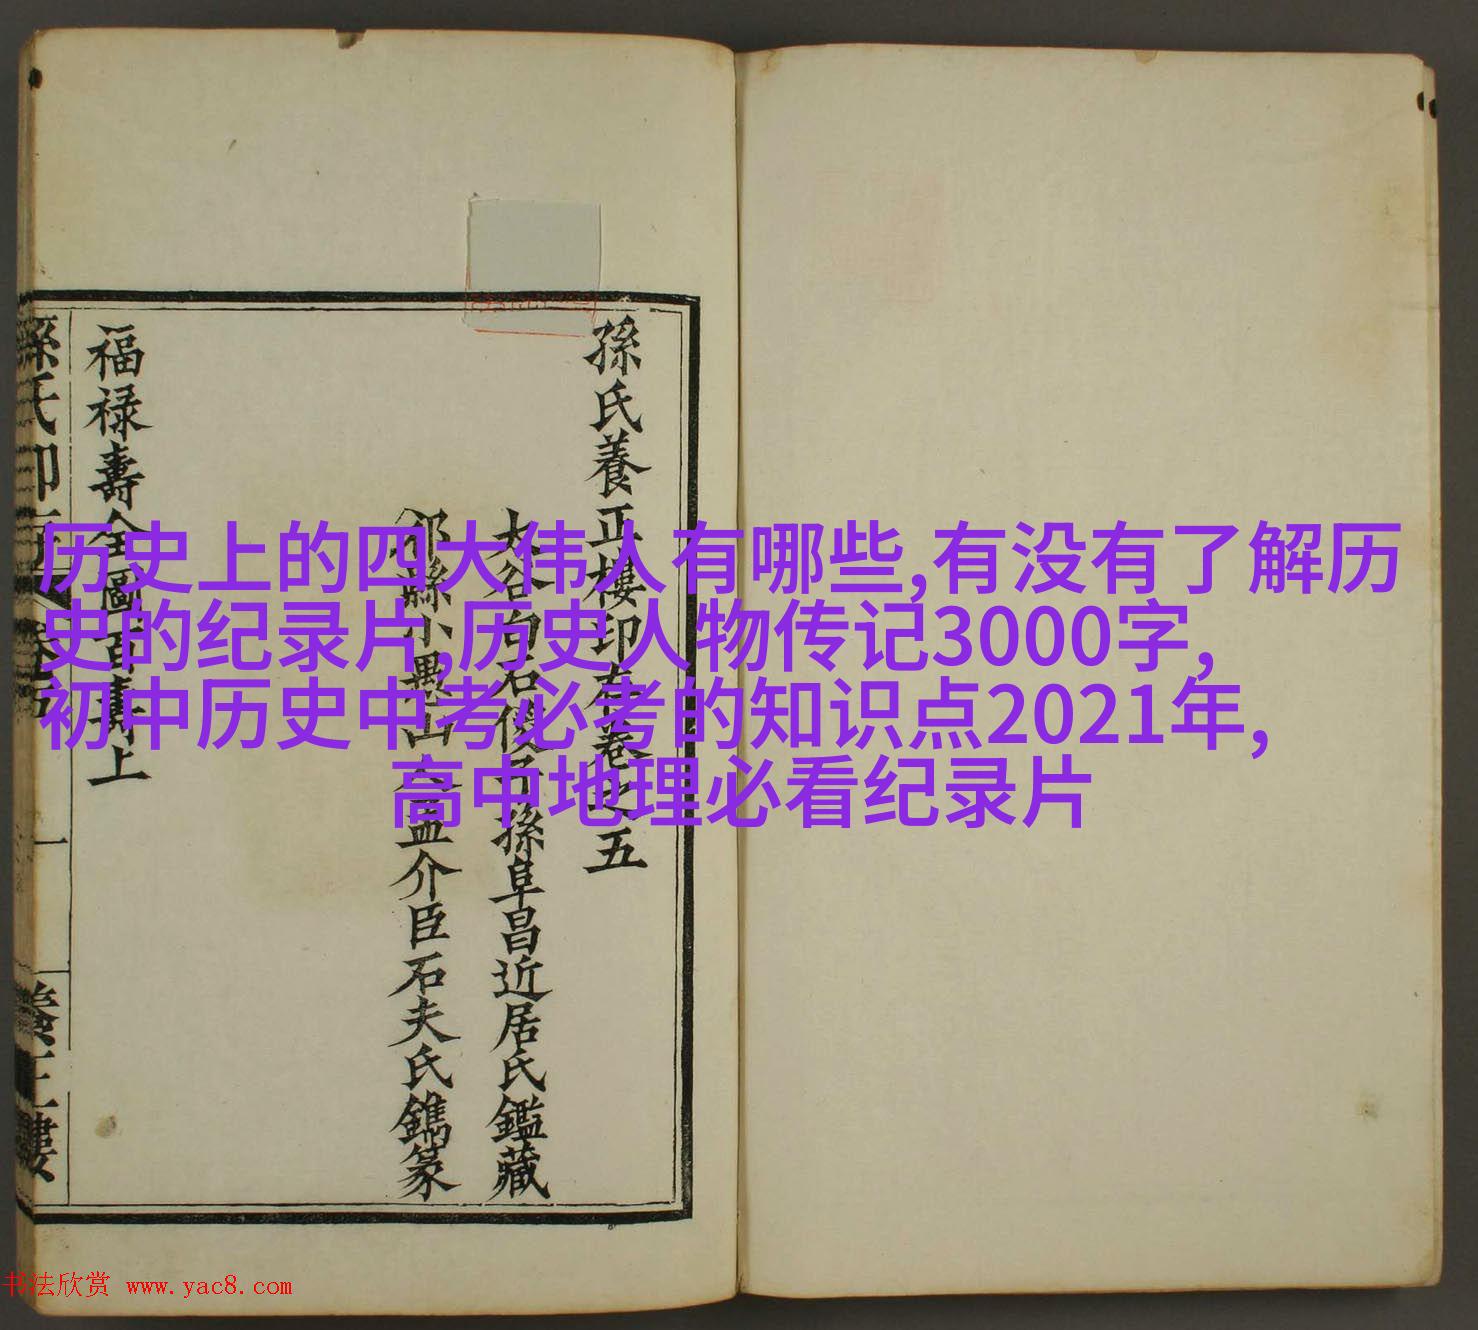 历史上的四大伟人有哪些,有没有了解历
史的纪录片,历史人物传记3000字,
初中历史中考必考的知识点2021年,
高中地理必看纪录片
孫氏養正樓印存卷之五
大谷白石僊子孫阜昌近居氏鑑藏
介臣石夫氏鐫篆
福禄壽全圖百壽上
书法欣赏 www.yac8.com